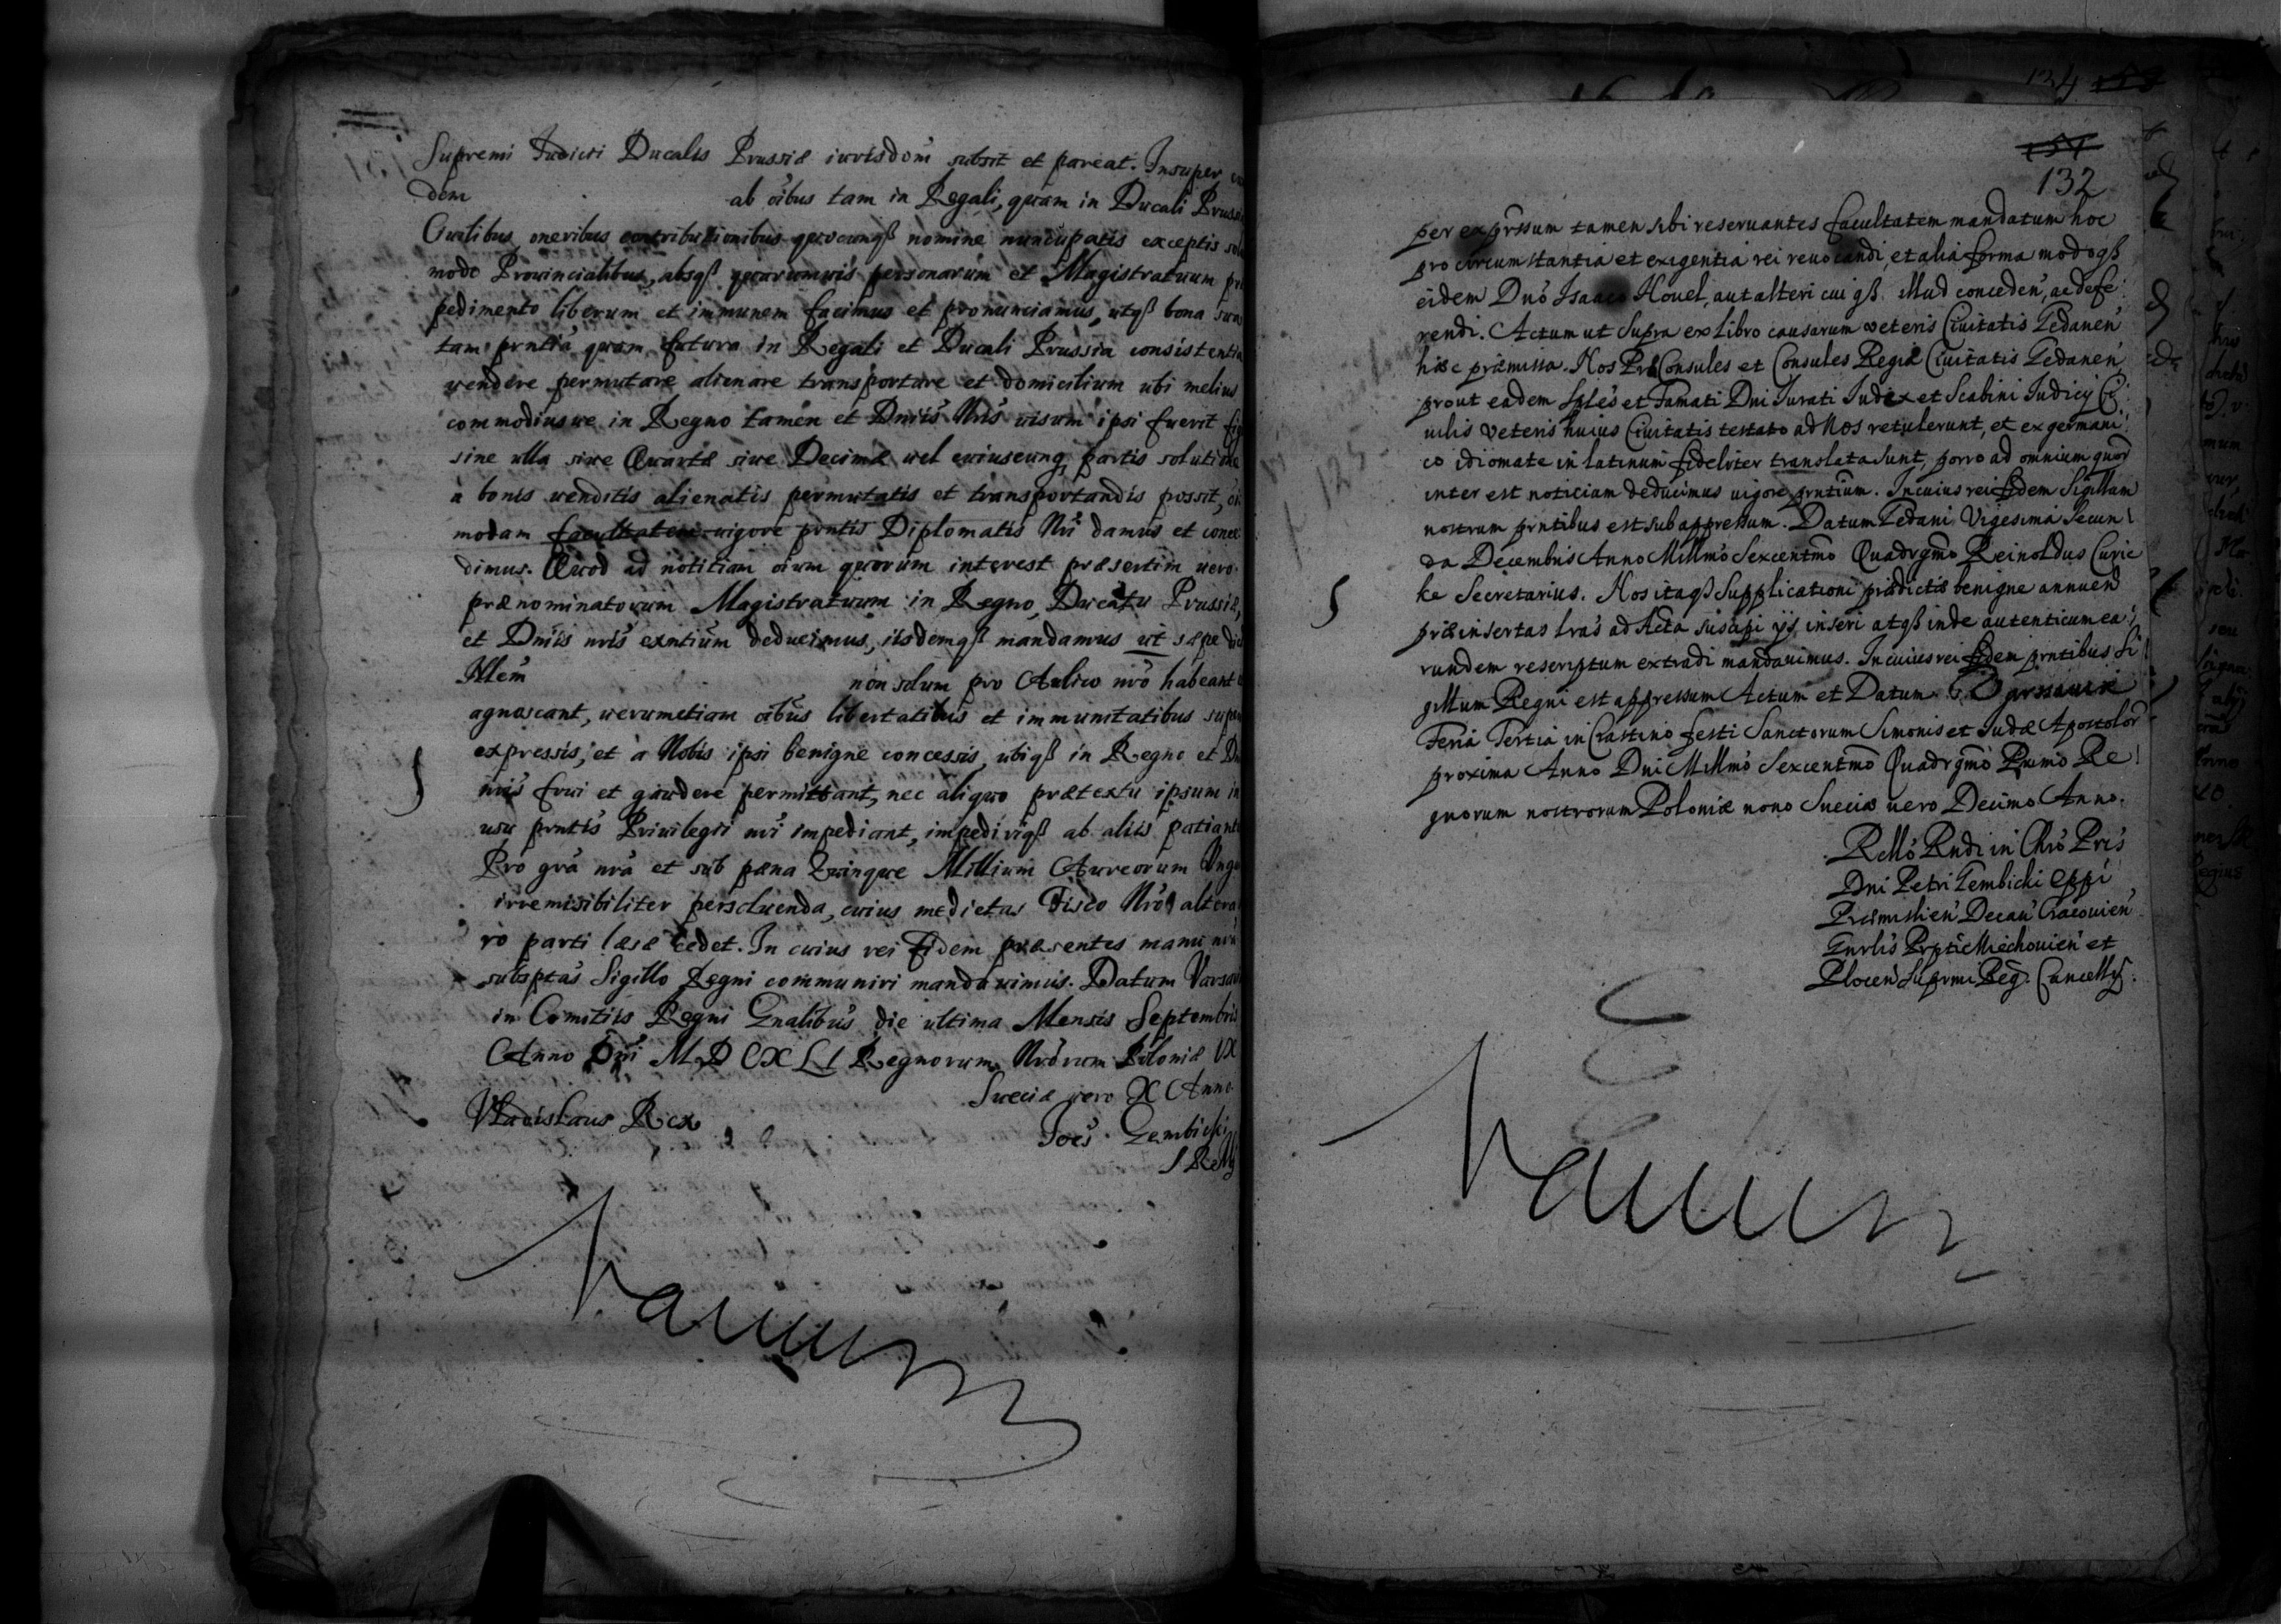 Supremi Judicii Ducalis Prussiæ iurisdom̃ subsit et pareat. Insuper
dem ab oĩbus tam in Regali, quam in Ducali Prussia
Ciuilibus oneribus contributionibus quocunqȝ nomine nuncupatis exceptis
modo Prouincialibus, absqȝ quorumuis personarum et Magistratuum
pedimento liberum et immunem facimus et pronunciamus, utqȝ bona sua
tam prntia quam futura in Regali et Ducali Prussia consistentia
vendere permutare alienare transportare et domicilium ubi melius
commodiusue in Regno tamen et Dniis Nris uisum ipsi fuerit
sine ulla siue Quartæ siue Decimæ uel cuiuscunq partis solutione
a bonis venditis alienatis permutatis et transportandis possit,
modam facultatem uigore prntis Diplomatis Nri damus et conce
dimus. Quod ad notitiam oium quorum interest præsertim uero
prænominatorum Magistratuum in Regno, Ducatu Prussiæ,
et Dniis nris exntium deducimus, iisdemqȝ mandamus ut sæpe
Illem non solum pro Aulico nro habeant
agnoscant, uerumetiam oibus libertatibus et immunitatibus
expressis, et a Nobis ipsi benigne concessis, ubiqȝ in Regno et
nris frui et gaudere permittant, nec aliquo prætextu ipsum in
usu prntis Priuilegii nri impediant, impediriqȝ ab aliis patiant
Pro gra nra et sub pæna Quinque Millium Aureorum
irremisibiliter persoluenda, cuius medietas Fisco Nro altera
ro parti læsæ cedet. In cuius rei Fidem præsentes manu nra
subsptas Sigillo Regni communiri mandauimus. Datum
in Comitiis Regni Gnalibus die ultima Mensis Septembris
Anno Dni MDCXLI Regnorum Nrorum Poloniæ IX
Sueciæ vero X Anno
Vladislaus Rex
Joes Gembicki
134
132
per exprssum tamen sibi reseruantes facultatem mandatum hoc
pro circumstantia et exigentia rei reuocandi, et alia forma modoqȝ
eidem Dno Isaaco Houel, aut alteri cuiqȝ illud conceden, ac defe
rendi. Actum ut Supra ex libro causarum veteris Ciuitatis Gedanen
hisce præmissa. Nos PræConsules et Consules Regiæ Ciuitatis Gedanen
prout eadem Sples et Famati Dni Jurati Judex et Scabini Judicij Ci
uilis Veteris huius Ciuitatis testato ad Nos retulerunt, et ex germani
co idiomate in latinum fideliter translata sunt, porro ad omnium quor
inter est noticiam deducimus uigore prntium. In cuius rei fidem Sigillum
nostrum prntibus est subappressum. Datum Gedani Vigesima Secun
da Decembris Anno Millmo Sexcentmo Quadrgmo Reinoldus Curic
ke Secretarius. Nos itaqȝ Supplicationi prædictis benigne annuen
præinsertas lras ad Acta suscipi ijs inseri atqȝ inde autenticum ea
rundem rescriptum extradi mandauimus. In cuius rei fidem prntibus Si
gillum Regni est appressum Actum et Datum
Feria Tertia in Crastino festi Sanctorum Simonis et Judæ Apostolor
proxima Anno Dni Millmo Sexcentmo Quadrgmo Primo Re
gnorum nostrorum Poloniæ nono Sueciæ uero Decimo Anno.
Rello Rndi in Chro Pris
Dni Petri Gembicki Eppi
Præmislien Decan Cracouien
Gnrlis Prpti Miechouien et
Plocen Suprmi Reg. Cancell